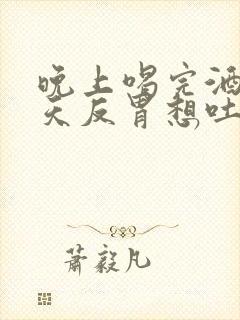 晚上喝完酒
天反胃想吐
萧毅凡